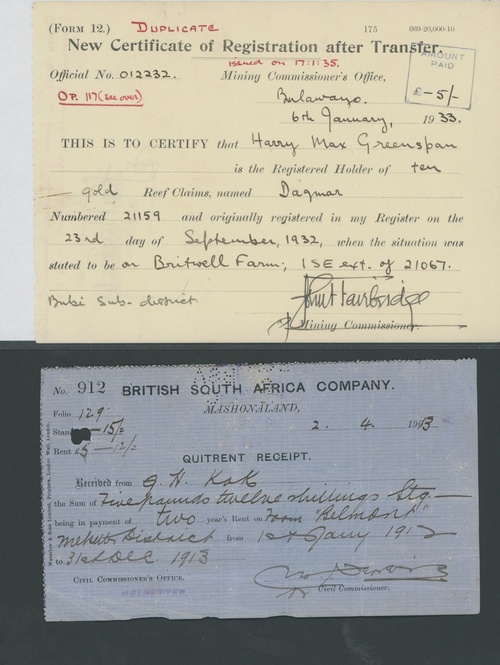 (FORM 12.) DUPLICATE 175 669-20,000-10
New Certificate of Registration after Transfer.
issued on 17:11:35.
Official No. 012232. Mining Commissioner's Office,
AMOUNT PAID
£-5/-
OP. 117 (see over)
Bulawayo.
6th January, 1933.
THIS IS TO CERTIFY that Harry Max Greenspan
is the Registered Holder of ten
gold Reef Claims, named Dagmar
Numbered 21159 and originally registered in my Register on the
23rd day of September, 1932, when the situation was
stated to be on Britwell Farm; 1 SE ext. of 21067.
Bubi Sub-district
Mining Commissioner.
No. 912 BRITISH SOUTH AFRICA COMPANY.
Folio 129
MASHONALAND,
2. 4. 1913
15/2
Rent £5-12/2
QUITRENT RECEIPT.
Received from J. H. Kok
the Sum of Five pounds twelve shillings Stg
being in payment of two year's Rent on Farm "Belmont"
District from 1st Jany 1912
to 31st Dec. 1913
CIVIL COMMISSIONER'S OFFICE.
MELSETTER
Civil Commissioner.